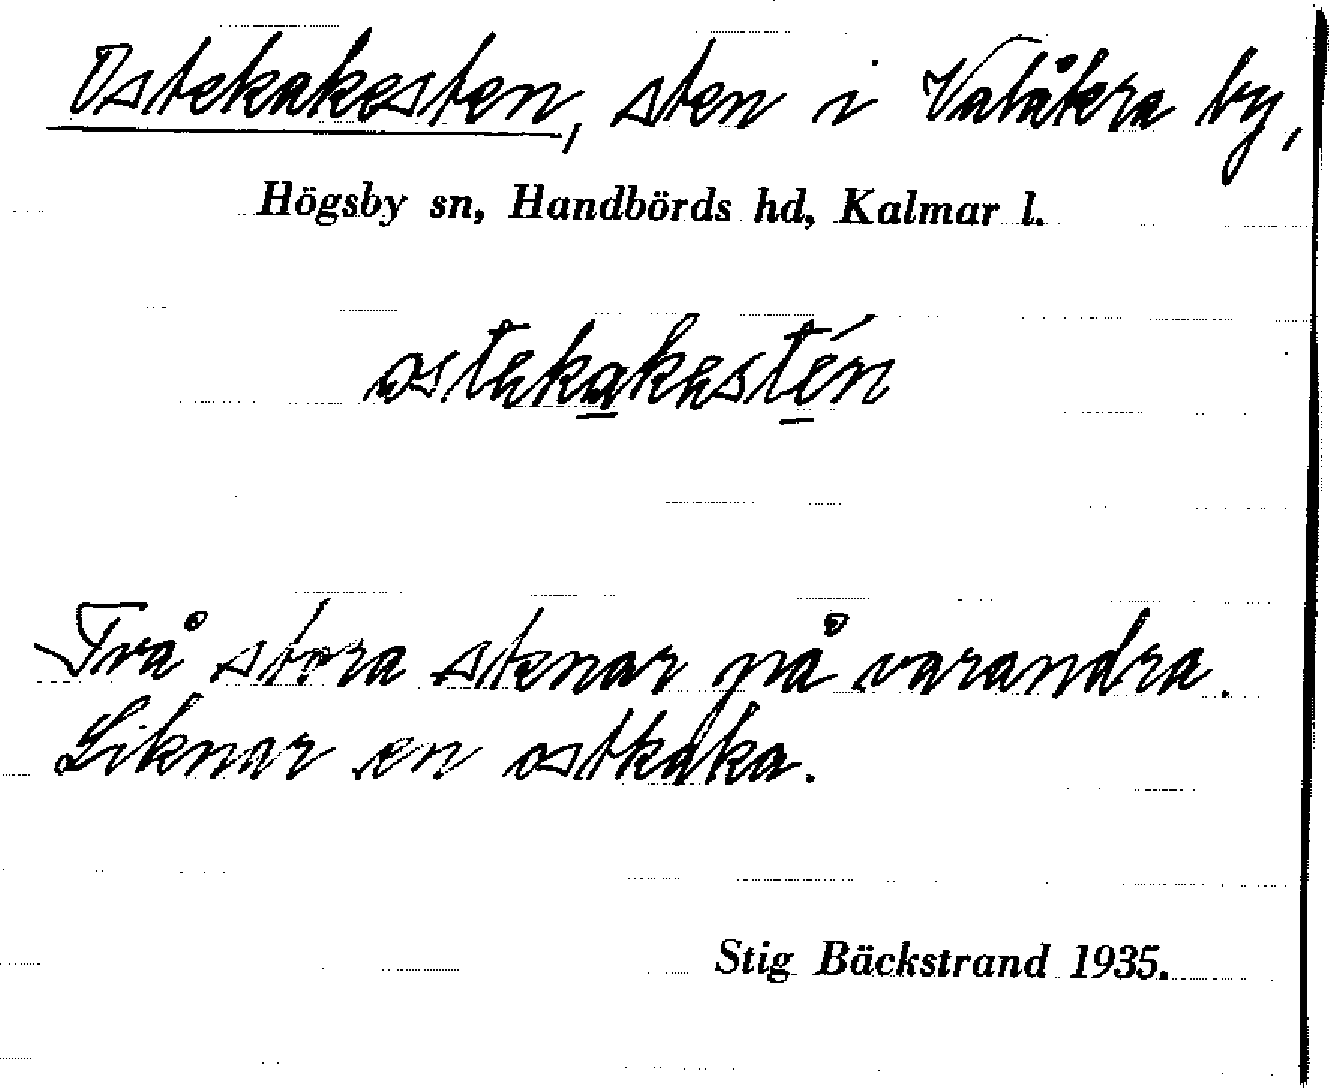 Ostekakesten, sten i Valåkra by,
Högsby sn, Handbörds hd, Kalmar l.
ostekakestén
Två stora stenar på varandra.
Liknar en ostkaka.
Stig Bäckstrand 1935.